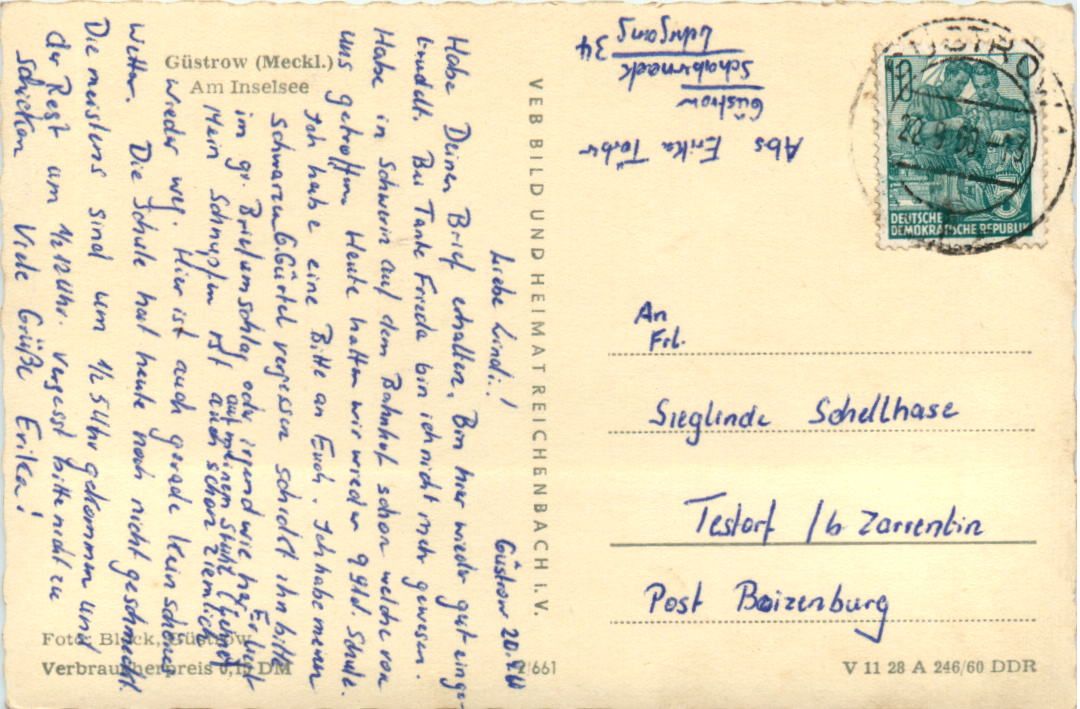 Güstrow (Meckl.)
Am Inselsee
Güstrow 20.9.60
Liebe Lindi!
Habe Deinen Brief erhalten. Bin hier wieder gut einge-
trudelt. Bei Tante Frieda bin ich nicht mehr gewesen.
Habe in Schwerin auf dem Bahnhof schon welche von
uns getroffen. Heute hatten wir wieder 9 Std. Schule.
Ich habe eine Bitte an Euch. Ich habe meinen
schwarzen Gürtel vergessen schickt ihn bitte
im gr. Briefumschlag oder irgendwie her. Er liegt
auf meinen Stuhl (
Mein Schnupfen ist auch schon ziemlich
wieder weg. Hier ist auch gerade kein schönes
Wetter. Die Schule hat heute noch nicht geschmeckt.
Die meisten sind um 1/2 5 Uhr gekommen und
der Rest um 1/2 12 Uhr. vergesst bitte nicht zu
schicken Viele Grüße Erika!
Foto: Black, Güstrow
Verbraucherpreis 0,15 DM
VEB BILD UND HEIMAT REICHENBACH I. V.
2/661
Abs Erika
Güstrow
Schabernack
Lehrgang 34
GÜSTROW 1
22.9.60-13
10
DEUTSCHE
DEMOKRATISCHE REPUBLIK
An
Frl.
Sieglinde Schellhase
Testorf /b Zarrentin
Post Boizenburg
V 11 28 A 246/60 DDR